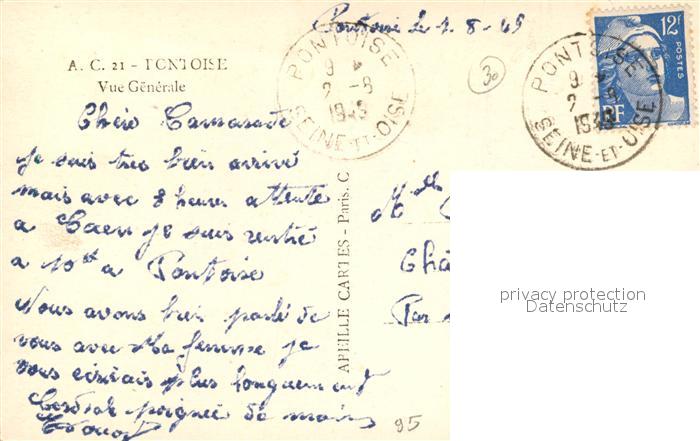 Pontoise le 1.8-49
A. C. 21 - PONTOISE
Vue Générale
PONTOISE
9
2 -8
1949
SEINE-ET-OISE
30
PONTOISE
9
2 -8
1949
SEINE-ET-OISE
12F
POSTES
RF
Chère Camarade
je suis très bien arrivé
mais avec 8 heures attente
a Caen je suis rentré
a 10h a Pontoise
Nous avons bien parlé de
vous avec Ma femme je
vous écrirais plus longuement
Cordiale poignée de mains
Mlle
Châ
Par
ABEILLE CARTES - Paris. C
privacy protection
Datenschutz
95